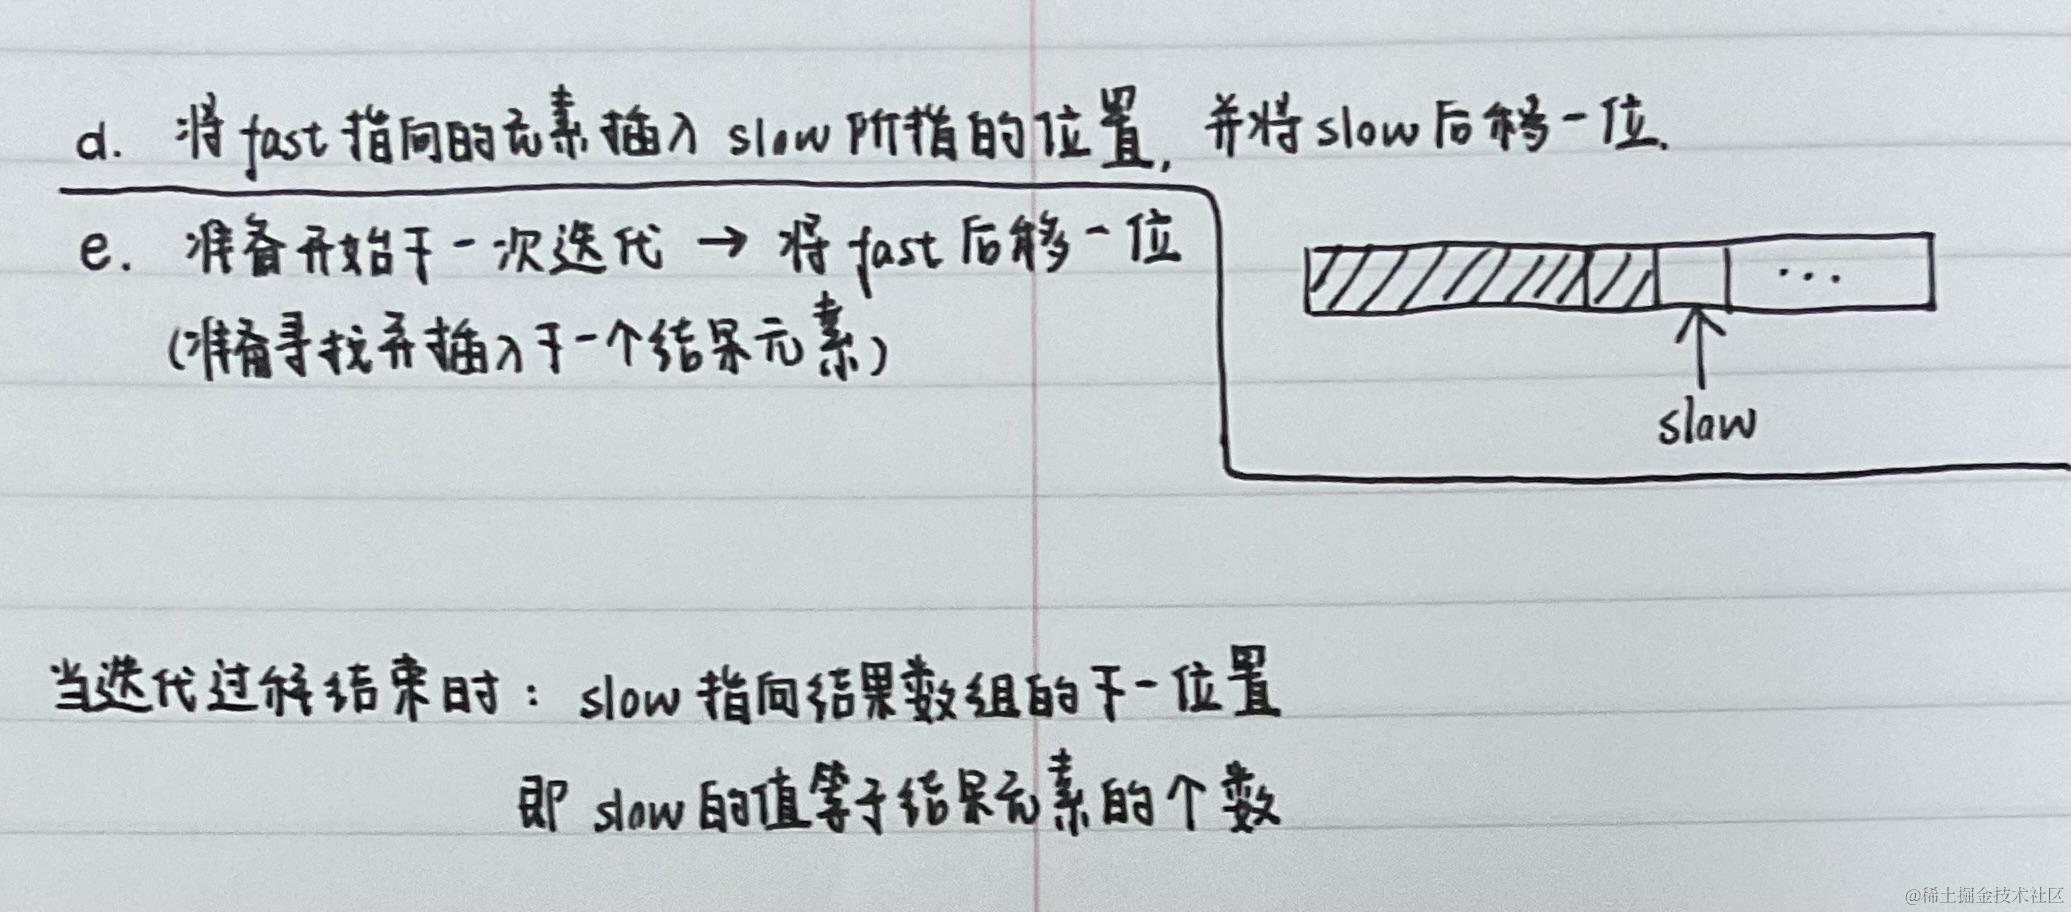 d. 将fast指向的元素插入slow所指的位置, 并将slow后移一位.
e. 准备开始下一次迭代 → 将fast后移一位
(准备寻找并插入下一个结果元素)
...
slow
当迭代过程结束时: slow指向结果数组的下一位置
即 slow的值等于结果元素的个数
@稀土掘金技术社区